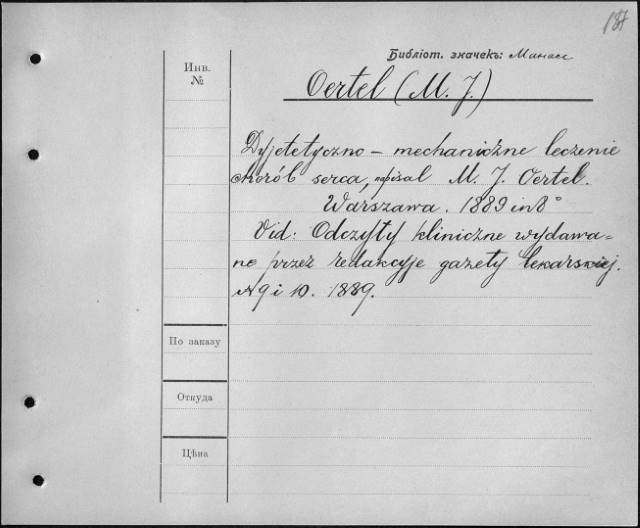 187
Библіот. значекъ: Манасс
Инв.
№
Oertel (M. J.)
Dyjetetyczno – mechaniczne leczenie
chorób serca, napisał M. J. Oertel.
Warszawa. 1889 in 8°
Vid: Odczyty kliniczne wydawa=
ne przez redakcyję gazety lekarskiej.
№ 9 i 10. 1889.
По заказу
Откуда
Цѣна